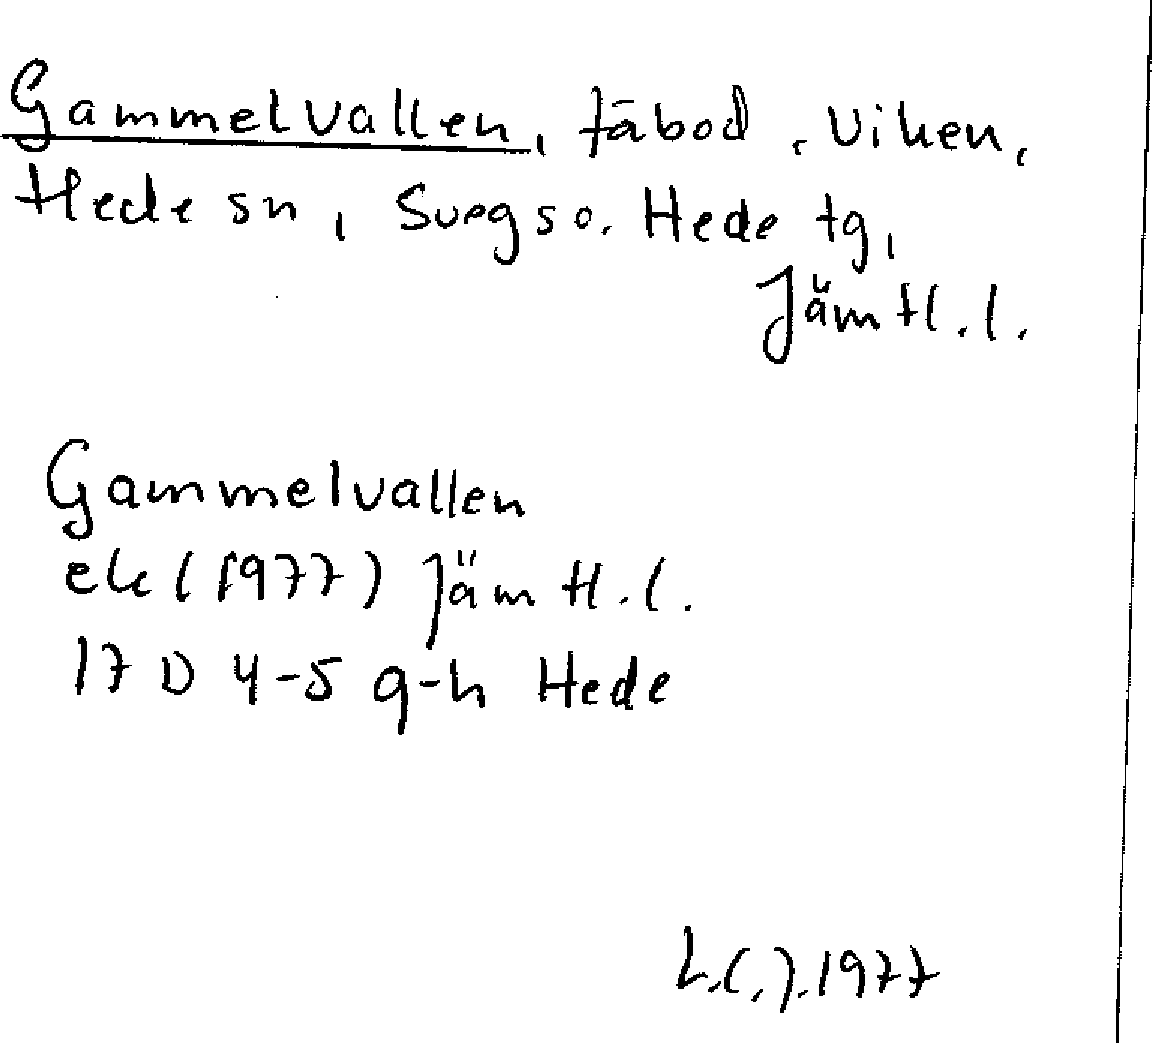 Gammelvallen, fäbod, Viken,
Hede sn, Svegs o. Hede tg,
Jämtl. l.
Gammelvallen
ek (1977) Jämtl. l.
17 D 4-5 g-h Hede
L.C.J. 1977